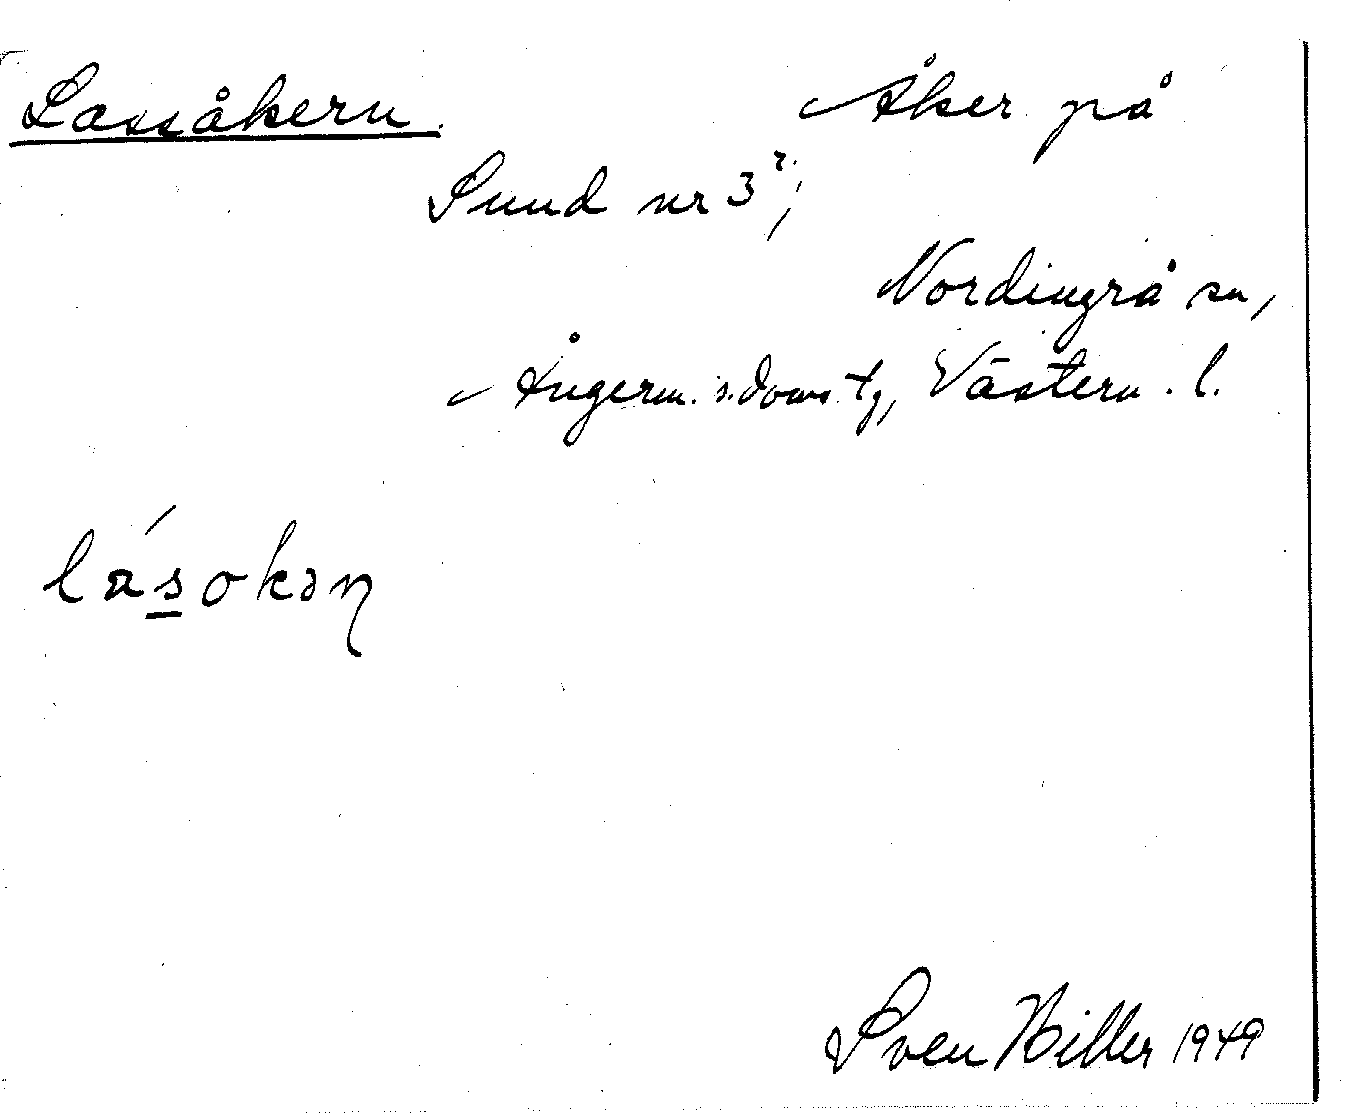 Lassåkern. Åker på
Sund nr 3²;
Nordingrå sn,
Ångerm. s. doms. tg, Västern. l.
lásokən
Sven Hiller 1949